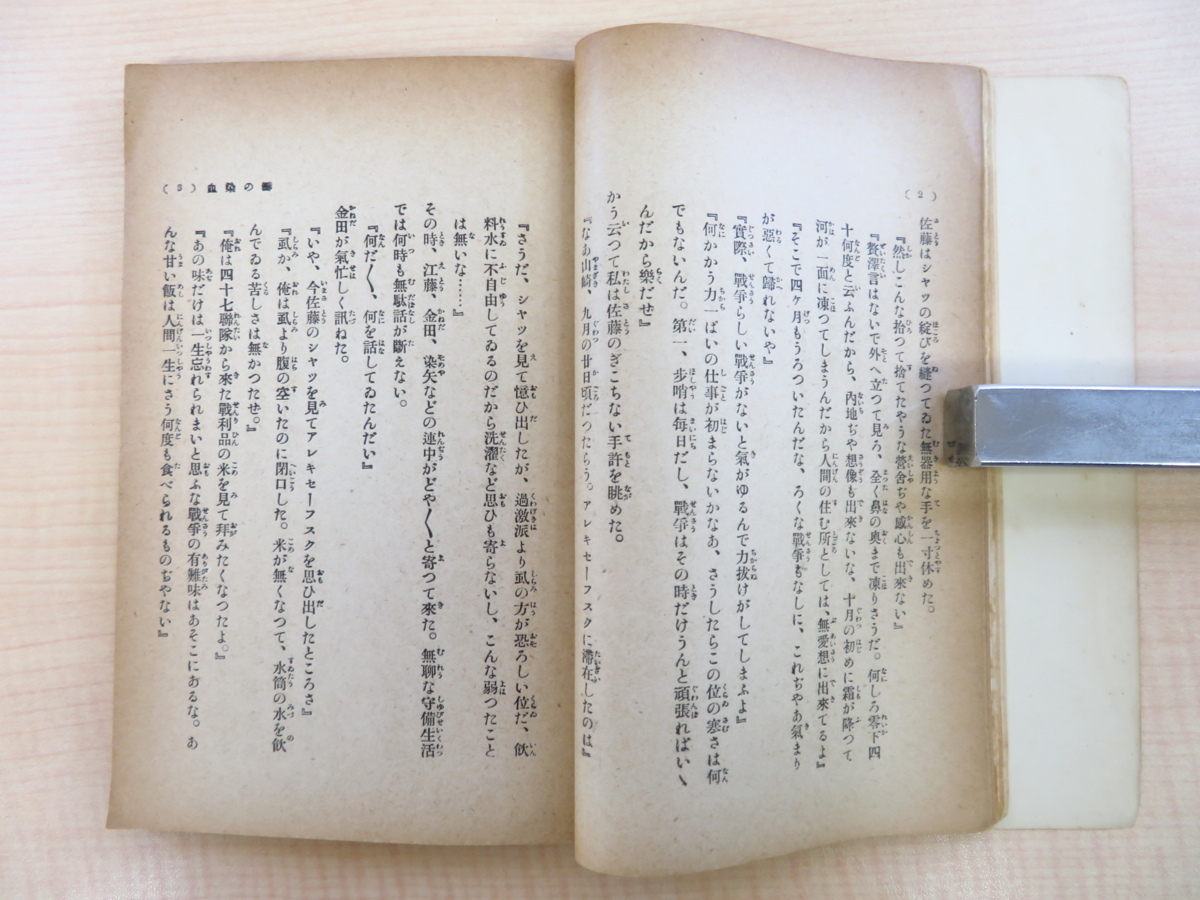 (2)
佐藤はシャツの綻びを縫つてゐた無器用な手を一寸休めた。
『然しこんな拾つて捨てたやうな營舎ぢや感心も出來ない』
『贅澤言はないで外へ立つて見ろ、全く鼻の奥まで凍りさうだ。何しろ零下四
十何度と云ふんだから、内地ぢや想像も出來ないな、十月の初めに霜が降つて
河が一面に凍つてしまうんだから人間の住む所としては、無愛想に出來てるよ』
『そこで四ヶ月もうろついたんだな、ろくな戰爭もなしに、これぢやあ氣まり
が惡くて歸れないや』
『實際、戰爭らしい戰爭がないと氣がゆるんで力抜けがしてしまふよ』
『何かかう力一ぱいの仕事が初まらないかなあ、さうしたらこの位の寒さは何
でもないんだ。第一、步哨は毎日だし、戰爭はその時だけうんと頑張ればいゝ
んだから樂だぜ』
かう云つて私は佐藤のぎこちない手許を眺めた。
『なあ山崎、九月の廿日頃だつたらう。アレキセーフスクに滯在したのは』
染の (3)
『さうだ、シャツを見て憶ひ出したが、過激派より虱の方が恐ろしい位だ、飲
料水に不自由してゐるのだから洗濯など思ひも寄らないし、こんな弱つたこと
は無いな……』
その時、江藤、金田、染矢などの連中がどや〱と寄つて來た。無聊な守備生活
では何時も無駄話が斷えない。
『何だ〱、何を話してゐたんだい』
金田が氣忙しく訊ねた。
『いや、今佐藤のシャツを見てアレキセーフスクを思ひ出したところさ』
『虱か、俺は虱より腹の空いたのに閉口した。米が無くなつて、水筒の水を飲
んでゐる苦しさは無かつたぜ。』
『俺は四十七聯隊から來た戰利品の米を見て拜みたくなつたよ。』
『あの味だけは一生忘れられまいと思ふな戰爭の有難味はあそこにあるな。あ
んな甘い飯は人間一生にさう何度も食べられるものぢやない』